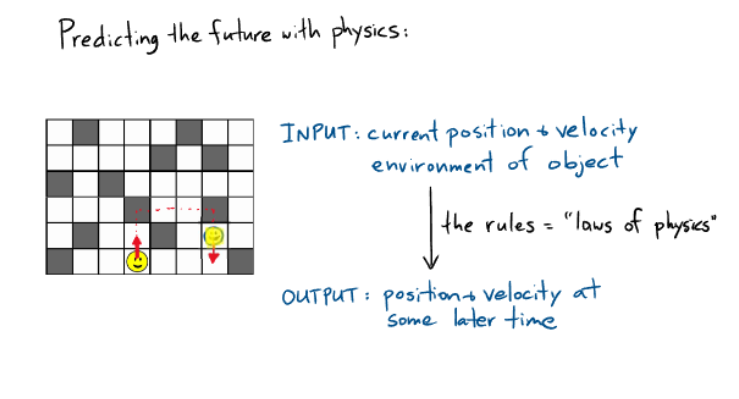 Predicting the future with physics:
INPUT: current position + velocity
environment of object
the rules = "laws of physics"
OUTPUT: position + velocity at
some later time